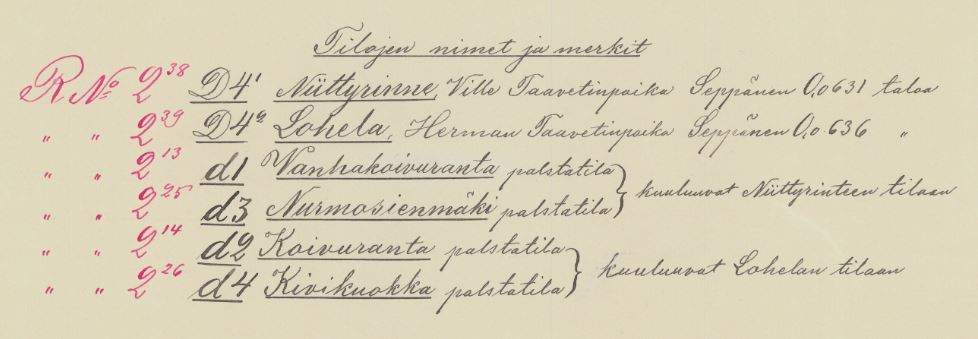 Tilojen nimet ja merkit
R No 2³⁸ D4¹ Niittyrinne, Ville Taavetinpoika Seppänen 0,0631 taloa
" " 2³⁹ D4ª Lohela, Herman Taavetinpoika Seppänen 0,0636 "
" " 2¹³ d1 Vanhakoivuranta palstatila
" " 2²⁵ d3 Nurmosienmäki palstatila } kuuluuvat Niittyrinteen tilaan
" " 2¹⁴ d2 Koivuranta palstatila
" " 2²⁶ d4 Kivikuokka palstatila } kuuluuvat Lohelan tilaan